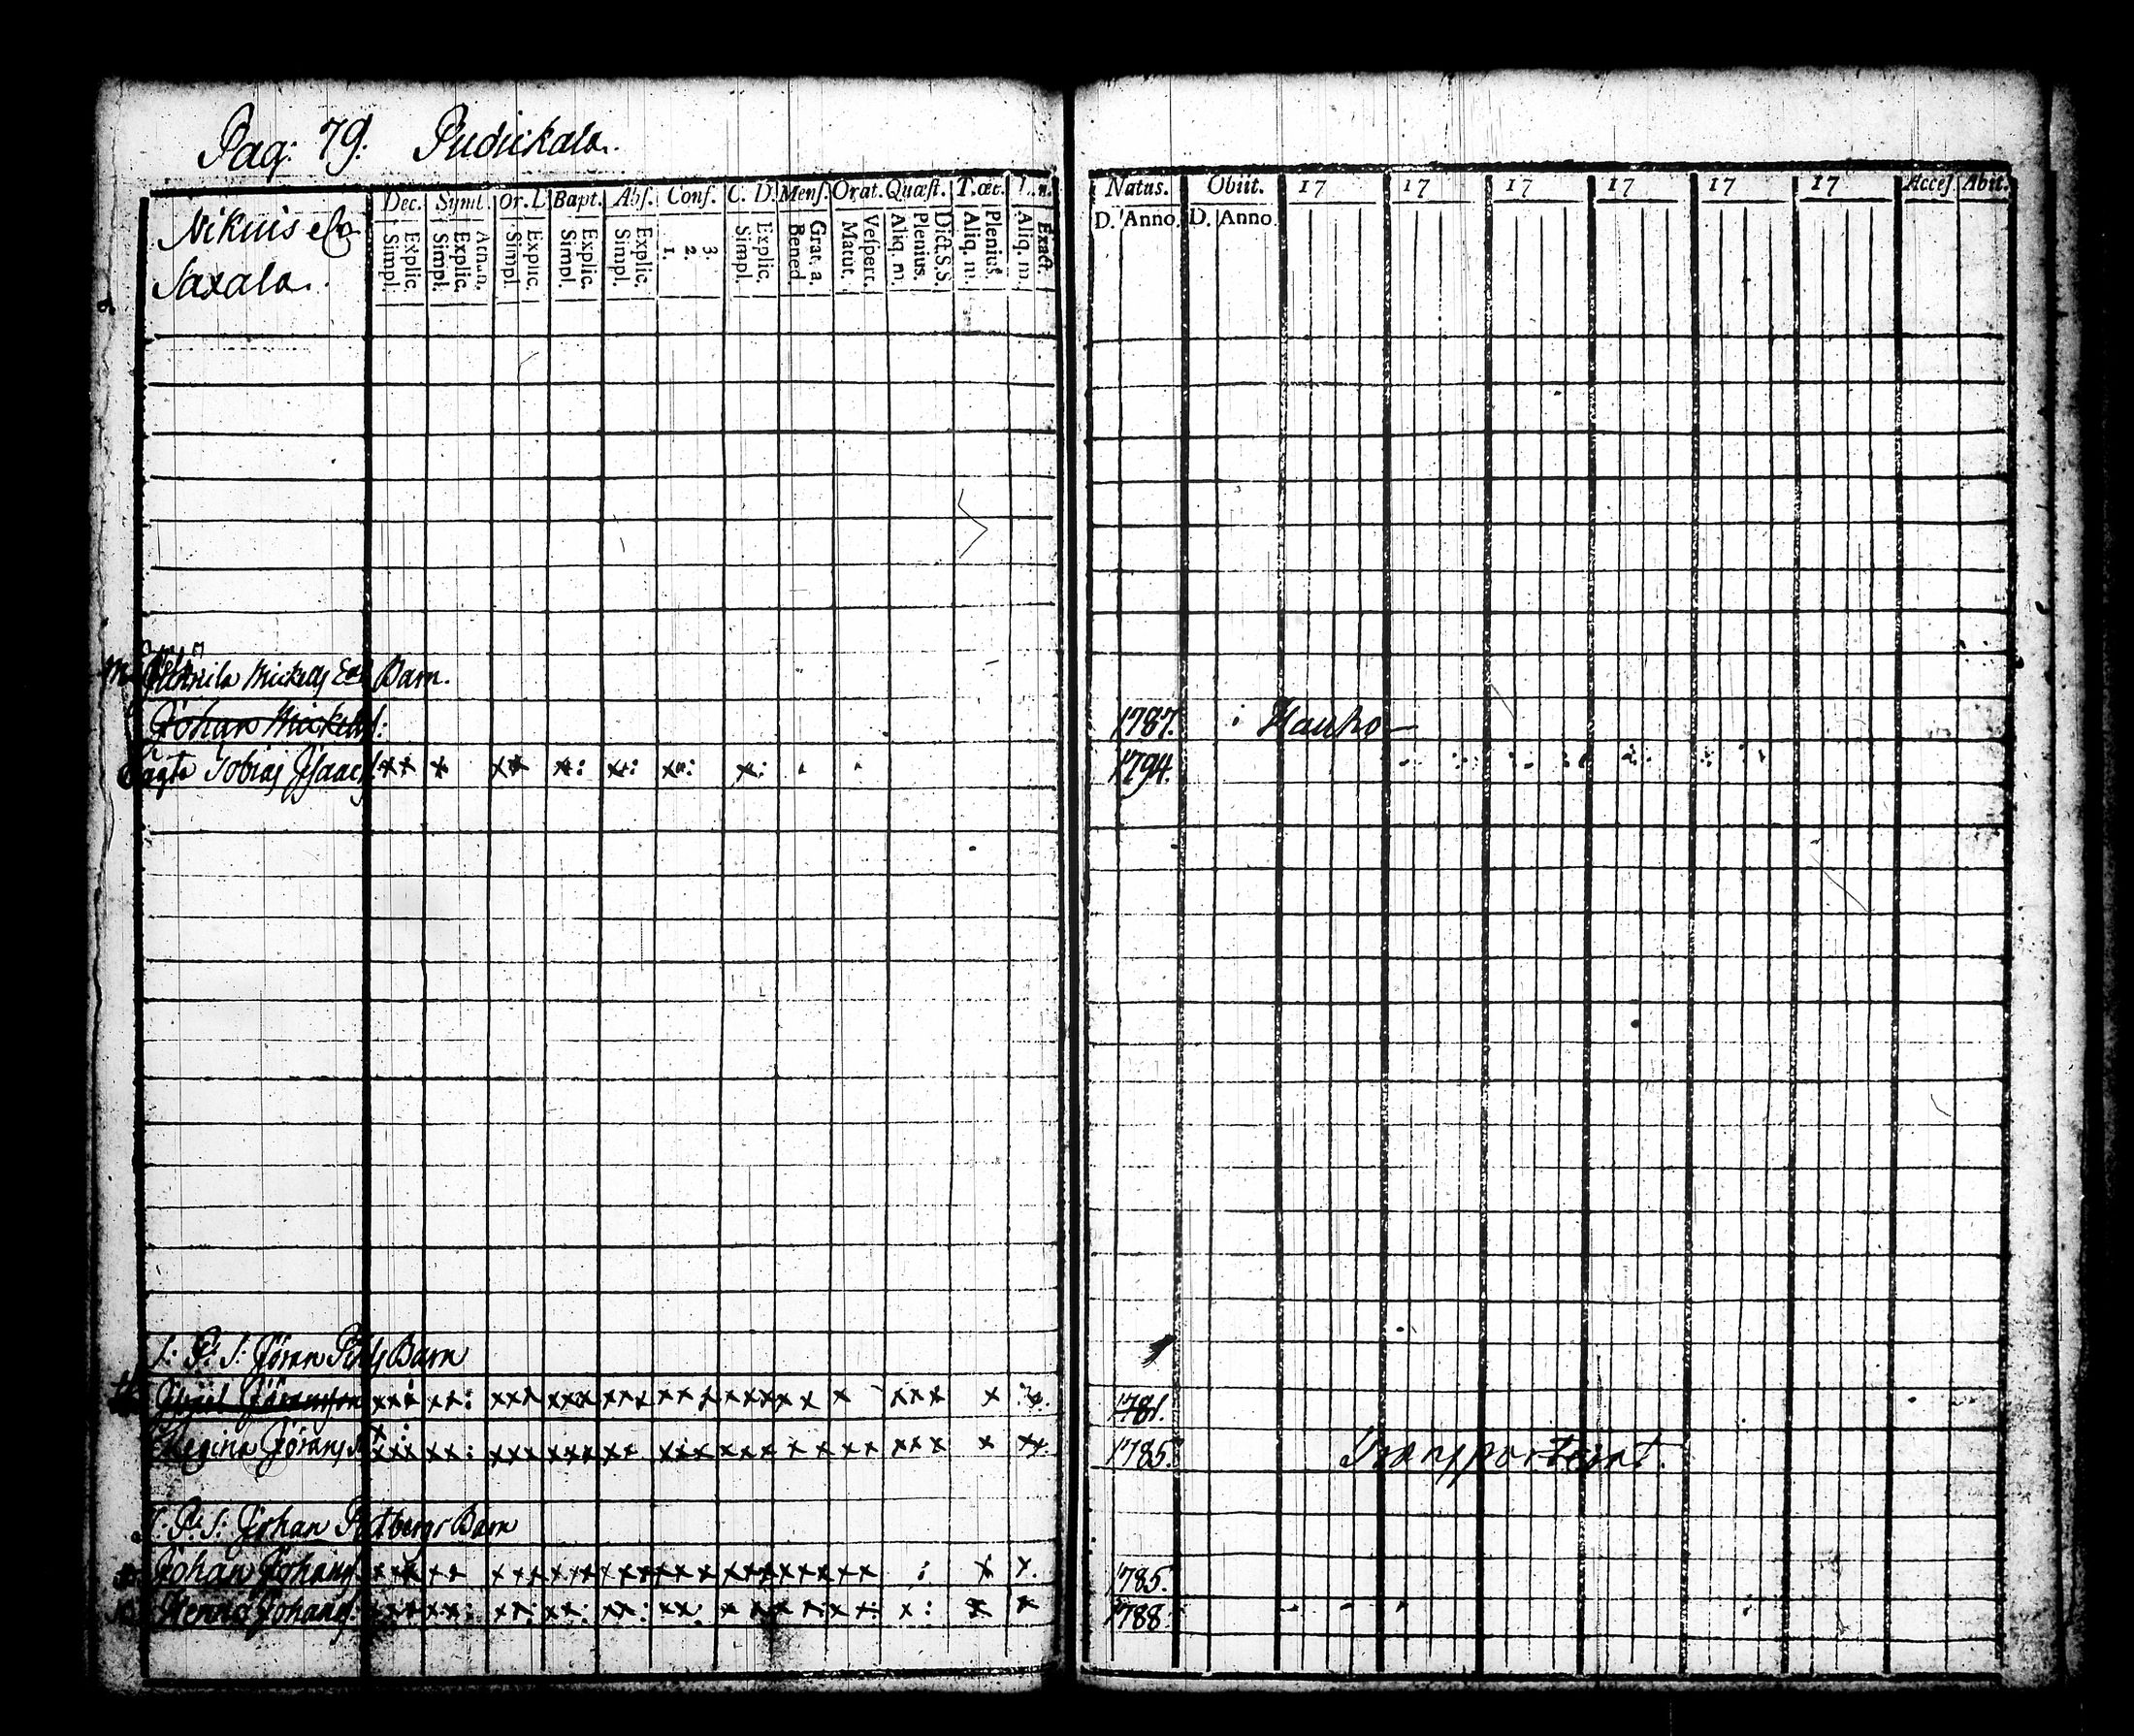 Pag: 79. Pudickala.
Dec. Symb. Or. D Bapt. Abs. Conf. C. D. Mens. Orat. Quæst. T. œc.
Explic. Simpl. Explic. Simpl. Explic. Simpl. Explic. Simpl. Explic. Simpl. 3. 2. 1. Explic. Simpl. Grat. a. Bened. Vespert. Matut. Dict. S. S. Plenius. Aliq. m. Plenius. Aliq. m. Exact. Aliq. m.
Natus. Obiit. 17 17 17 17 17 17 Acces. Abit.
D. Anno. D. Anno
Nikuis
Saxala.
Mickels Barn.
Johan Mickels: 1787. i Hauho
Tobias Isaacs: 1794.
S: P: S: Jöran Barn
1781.
Regina Jörans 1785. Transporterat.
S: P: S: Johan Barn
Johan Johans 1785.
Johans: 1788.